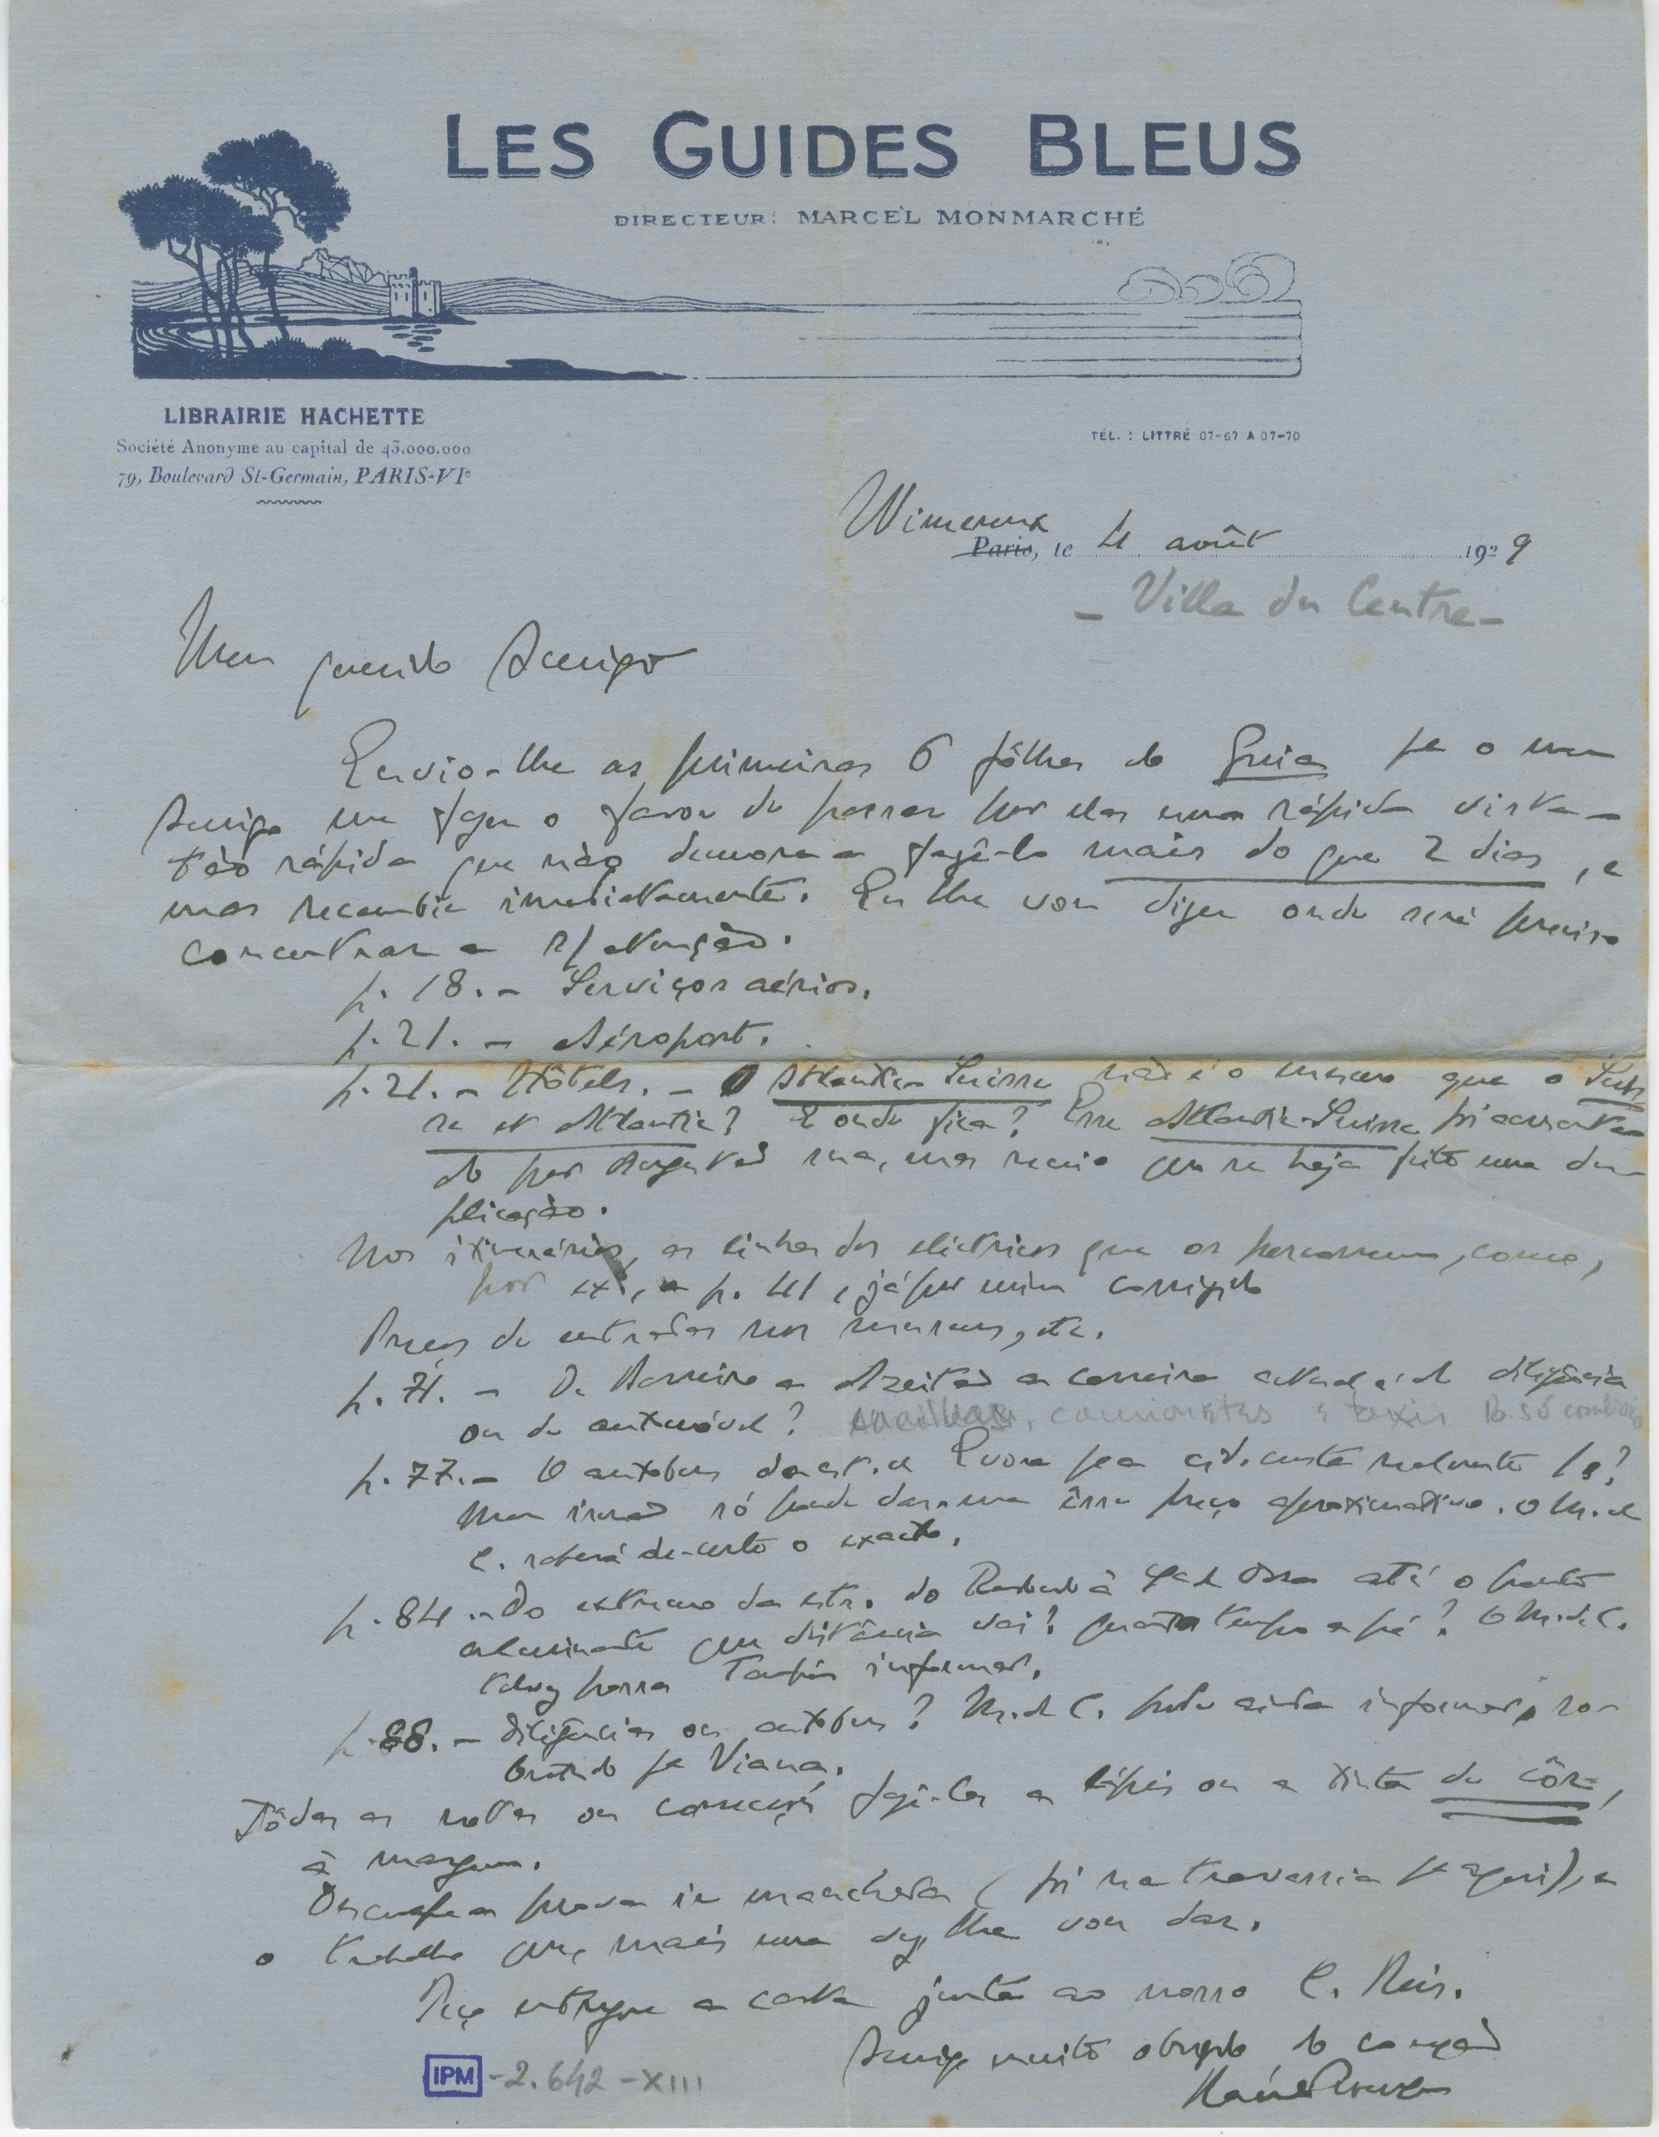 LES GUIDES BLEUS
DIRECTEUR: MARCEL MONMARCHÉ
LIBRAIRIE HACHETTE
Société Anonyme au capital de 43.000.000
79, Boulevard St-Germain, PARIS-VIe
TÉL. : LITTRÉ 07-67 A 07-70
Wimereux
Paris, le 4 août 1929
- Villa du Centre -
Meu querido Amigo
Envio-lhe as primeiras 6 fôlhas do Guia pa o meu
Amigo me fazer o favor de passar por elas uma rápida vista -
tão rápida que não demore a fazê-lo mais do que 2 dias, e
mas recambie imediatamente. Eu lhe vou dizer onde será preciso
concentrar a s/ atenção.
p. 18. - Serviços aérios.
p. 21. - Aéroport.
p. 21. - Hôtels. - O Atlantic-Suisse não é o mesmo que o Suis
se et Atlantic? E onde fica? Esse Atlantic-Suisse foi acrescenta
do por Angustad sua, mas receio que se haja feito uma du-
plicação.
Nos itinerários, as linhas dos eléctricos que os percorrem, como,
por ex., a p. 41, já por mim corrigido
Preços de entradas nos museus, etc.
p. 71. - De Barreiro a Azeitão a carreira actual é de diligência
ou de automóvel? camionetas e taxis
p. 77. - O autobus da est. a Evora pa a cid. custa realmente 1$?
Meu irmão só pode dar-me êsse preço aproximativo. O M. de
C. saberá de-certo o exacto.
p. 84. - Do extremo da estr. do Redondo à Sa d'Ossa até o ponto
culminante que distância vai? Quanto tempo a pé? O M. de C.
talvez possa tambem informar.
p. 88. - Diligencias ou autobus? M. de C. pode ainda informar, so-
bretudo pa Viana.
Tôdas as notas ou correcções fazê-las a lápis ou a tinta de côr,
à margem.
Desculpe a prova ir manchada (foi na travessia pa aqui), e
o trabalho que, mais uma vez, lhe vou dar.
Peço entregue a carta junta ao nosso C. Reis.
Amigo muito obrigado do coração
IPM - 2.642 - XIII